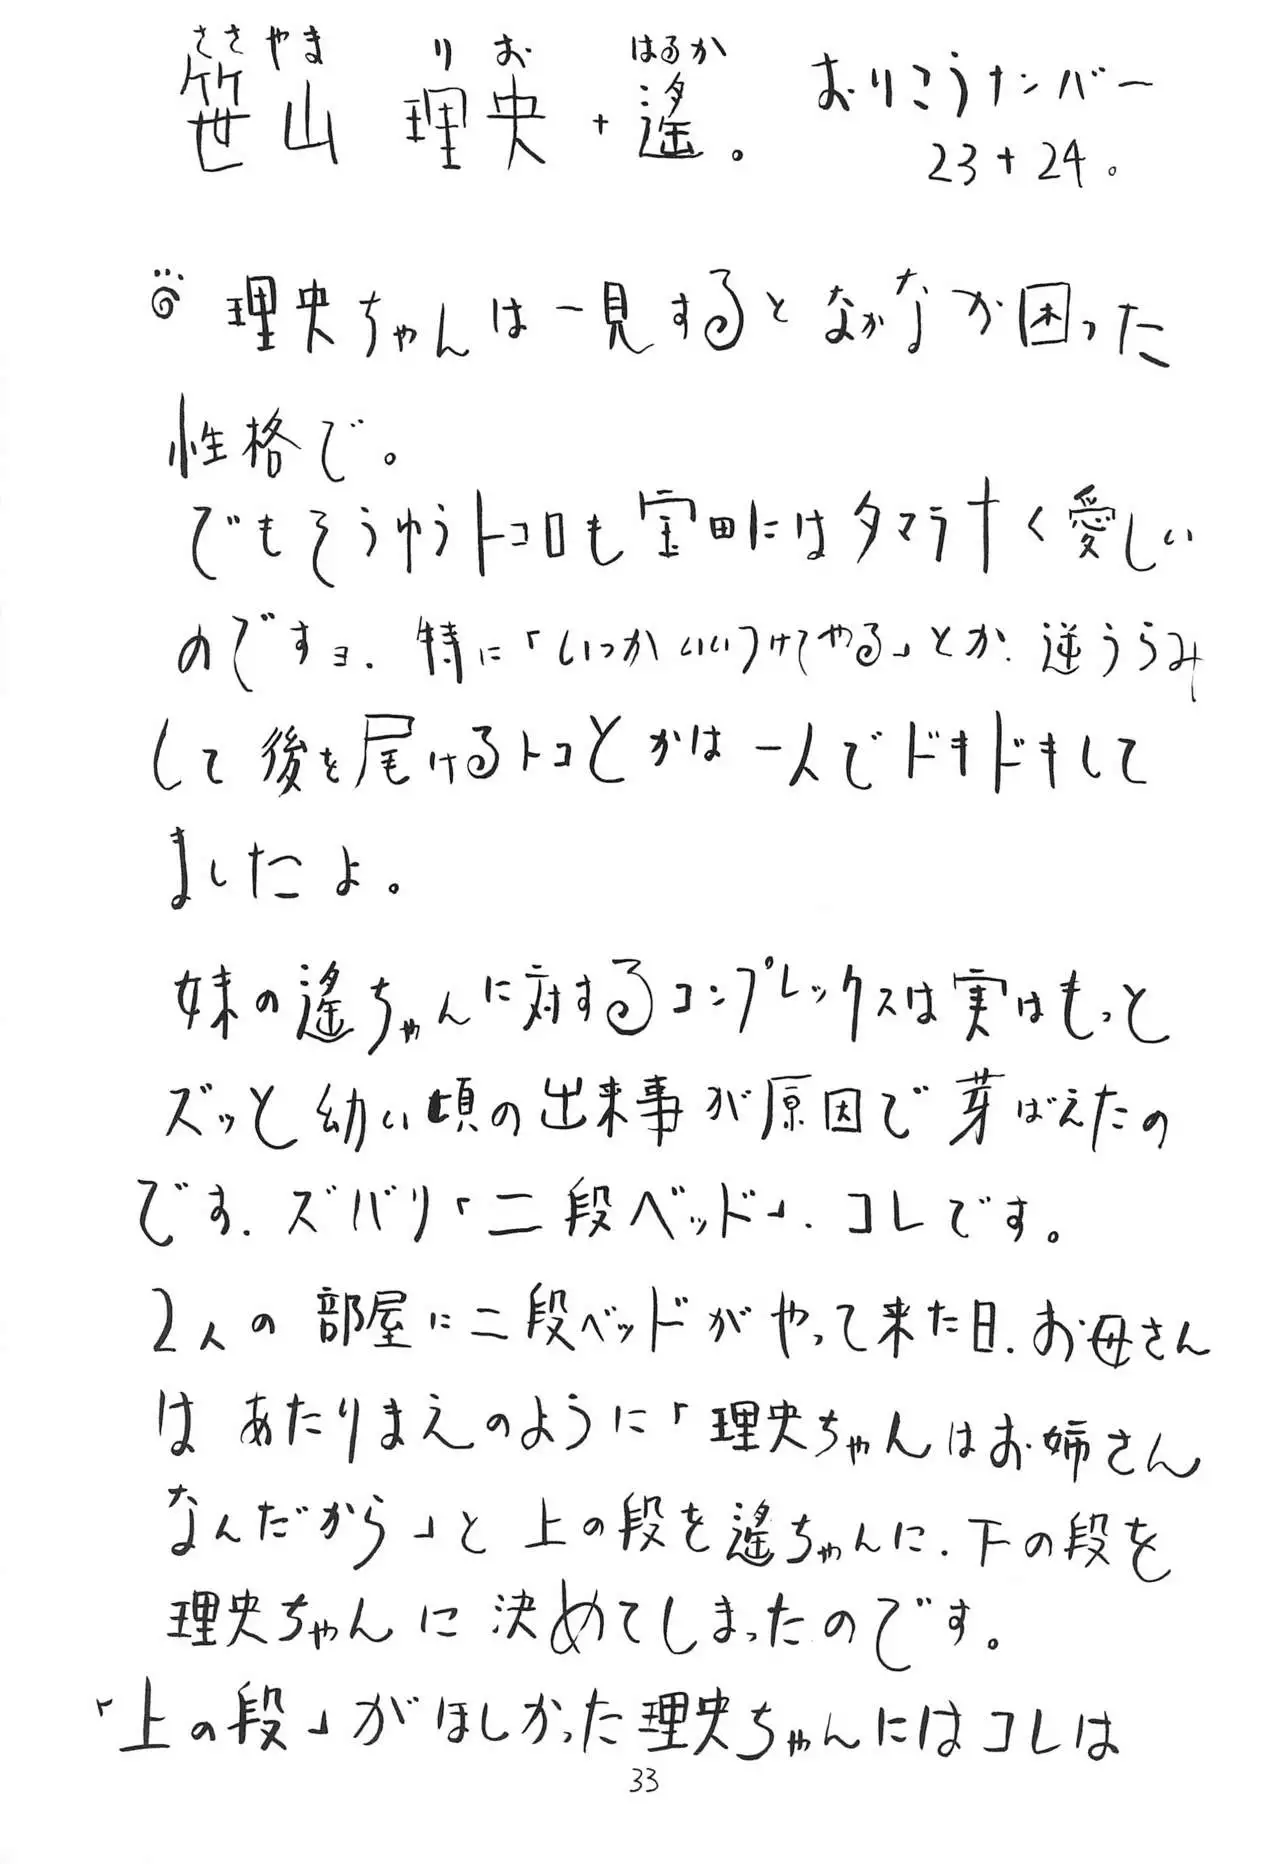 ささやま りお はるか
笹山 理央+遙。 おりこうナンバー
23+24。
理央ちゃんは一見するとなかなか困った
性格で。
でもそうゆうトコロも宝田にはタマラナく愛しい
のですョ. 特に「いつかいいつけてやる」とか. 逆うらみ
して後を尾けるトコとかは一人でドキドキして
ましたよ。
妹の遙ちゃんに対するコンプレックスは実はもっと
ズッと幼い頃の出来事が原因で芽ばえたの
です. ズバリ「二段ベッド」. コレです。
2人の部屋に二段ベッドがやって来た日. お母さん
はあたりまえのように「理央ちゃんはお姉さん
なんだから」と上の段を遙ちゃんに. 下の段を
理央ちゃんに決めてしまったのです。
「上の段」がほしかった理央ちゃんにはコレは
33